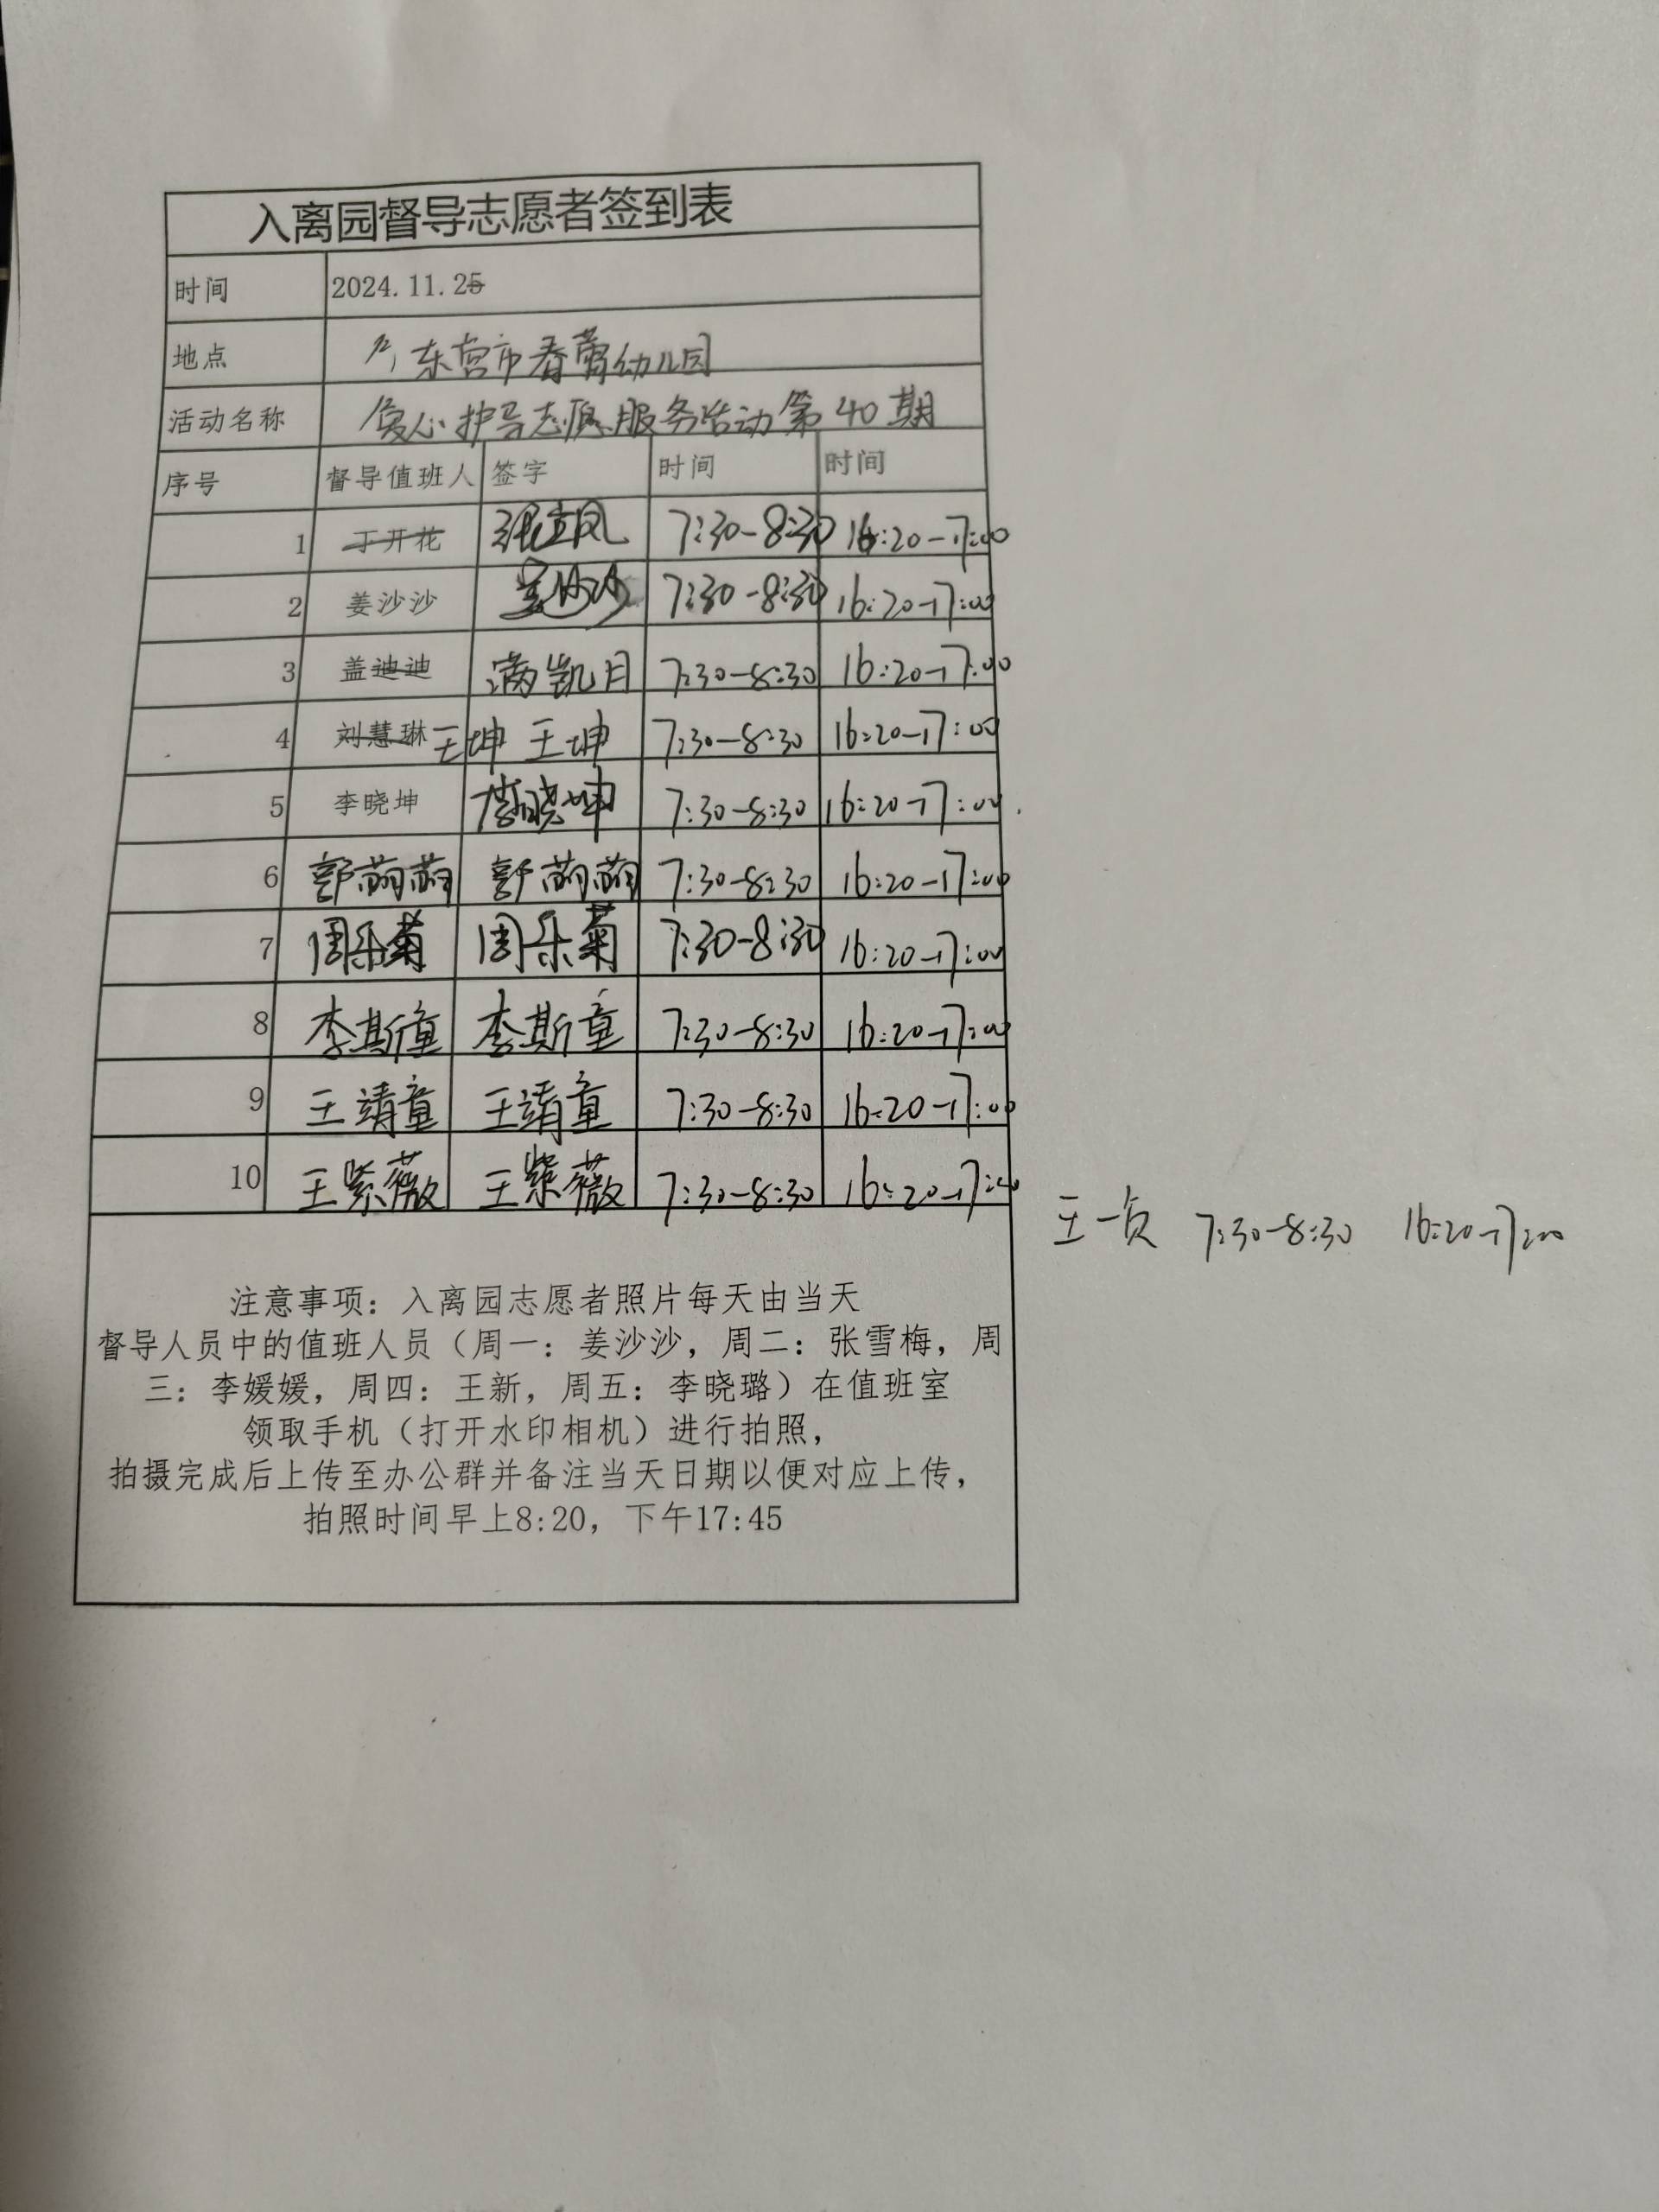 入离园督导志愿者签到表
时间 2024.11.25
地点 广东营市春蕾幼儿园
活动名称 爱心护导志愿服务活动第40期
序号 督导值班人 签字 时间 时间
1 丁开花 7:30-8:30 16:20-17:00
2 姜沙沙 姜沙沙 7:30-8:30 16:20-17:00
3 盖迪迪 满凯月 7:30-8:30 16:20-17:00
4 刘慧琳 王坤 王坤 7:30-8:30 16:20-17:00
5 李晓坤 李晓坤 7:30-8:30 16:20-17:00
6 郭萌萌 郭萌萌 7:30-8:30 16:20-17:00
7 周乐菊 周乐菊 7:30-8:30 16:20-17:00
8 李斯童 李斯童 7:30-8:30 16:20-17:00
9 王靖童 王靖童 7:30-8:30 16:20-17:00
10 王紫薇 王紫薇 7:30-8:30 16:20-17:00
王一贞 7:30-8:30 16:20-17:00
注意事项：入离园志愿者照片每天由当天
督导人员中的值班人员（周一：姜沙沙，周二：张雪梅，周
三：李媛媛，周四：王新，周五：李晓璐）在值班室
领取手机（打开水印相机）进行拍照，
拍摄完成后上传至办公群并备注当天日期以便对应上传，
拍照时间早上8:20，下午17:45